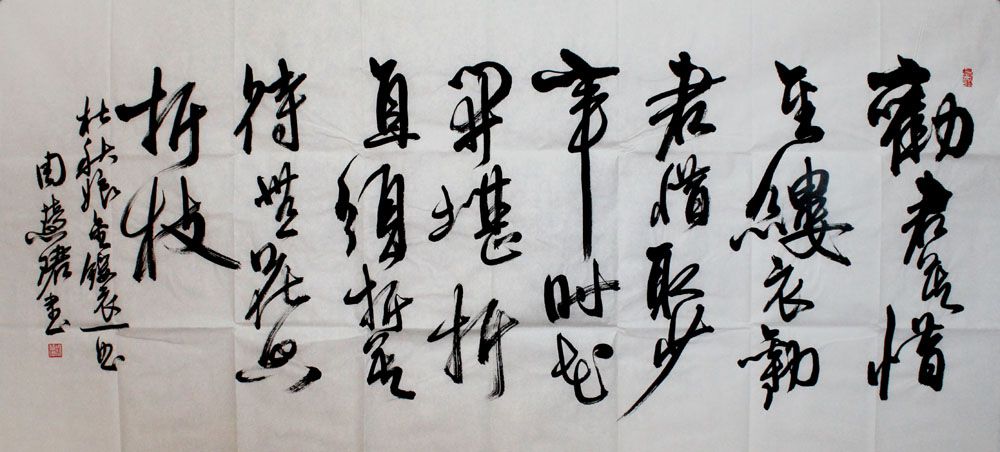 勸君莫惜
金縷衣勸
君惜取少
年时花
開堪折
直須折莫
待無花空
折枝
杜秋娘金縷衣一首
周慧珺書